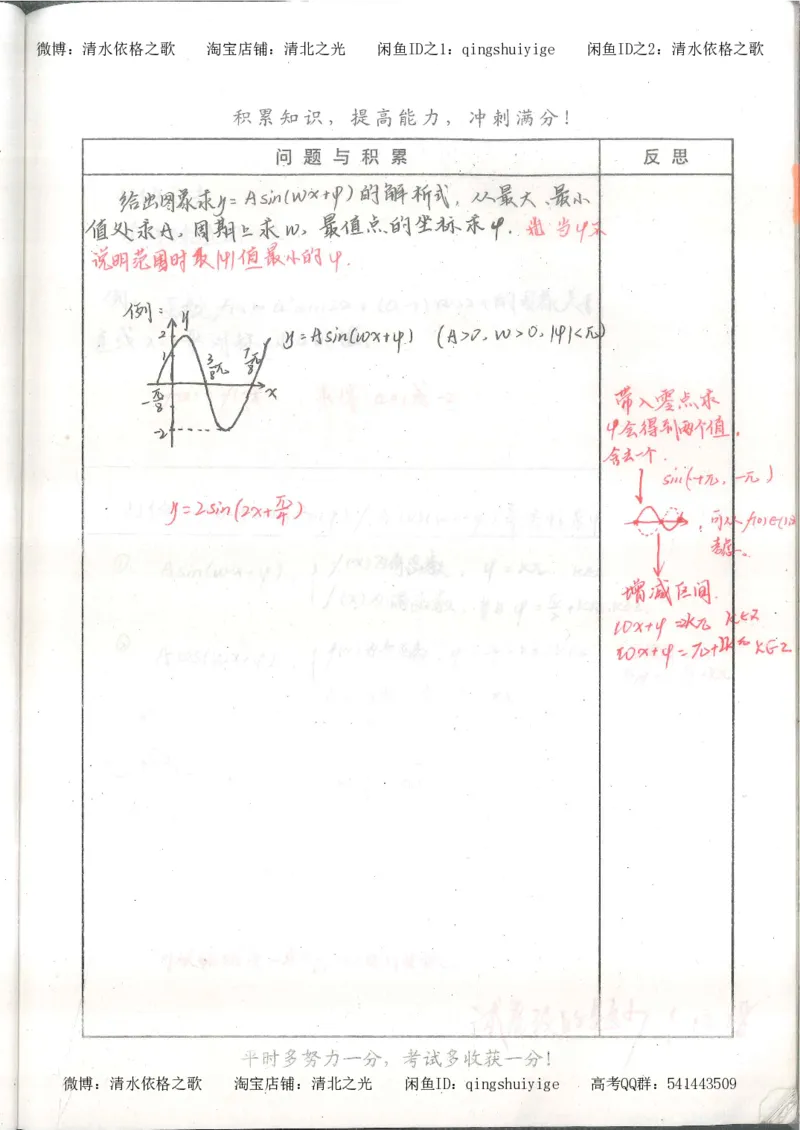 微博：清水依格之歌 淘宝店铺：清北之光 闲鱼ID之1：qingshuiyige 闲鱼ID之2：清水依格之歌
积累知识，提高能力，冲刺满分！
问题与积累 反思
给出图象求y=Asin(wx+φ)的解析式，从最大、最小
值处求A，周期上求w，最值点的坐标求φ. 当φ不
说明范围时取|φ|值最小的φ.
例：
y
2
1
y=Asin(wx+φ) (A>0, w>0, |φ|<π)
3/8π
7/8π
x
-π/8
-2
y=2sin(2x+π/4)
带入零点求
φ会得到两个值，
舍去一个.
sin(-+π, -π)
增减区间.
wx+φ=2kπ k∈Z
wx+φ=π+2kπ k∈Z
平时多努力一分，考试多收获一分！
微博：清水依格之歌 淘宝店铺：清北之光 闲鱼ID：qingshuiyige 高考QQ群：541443509